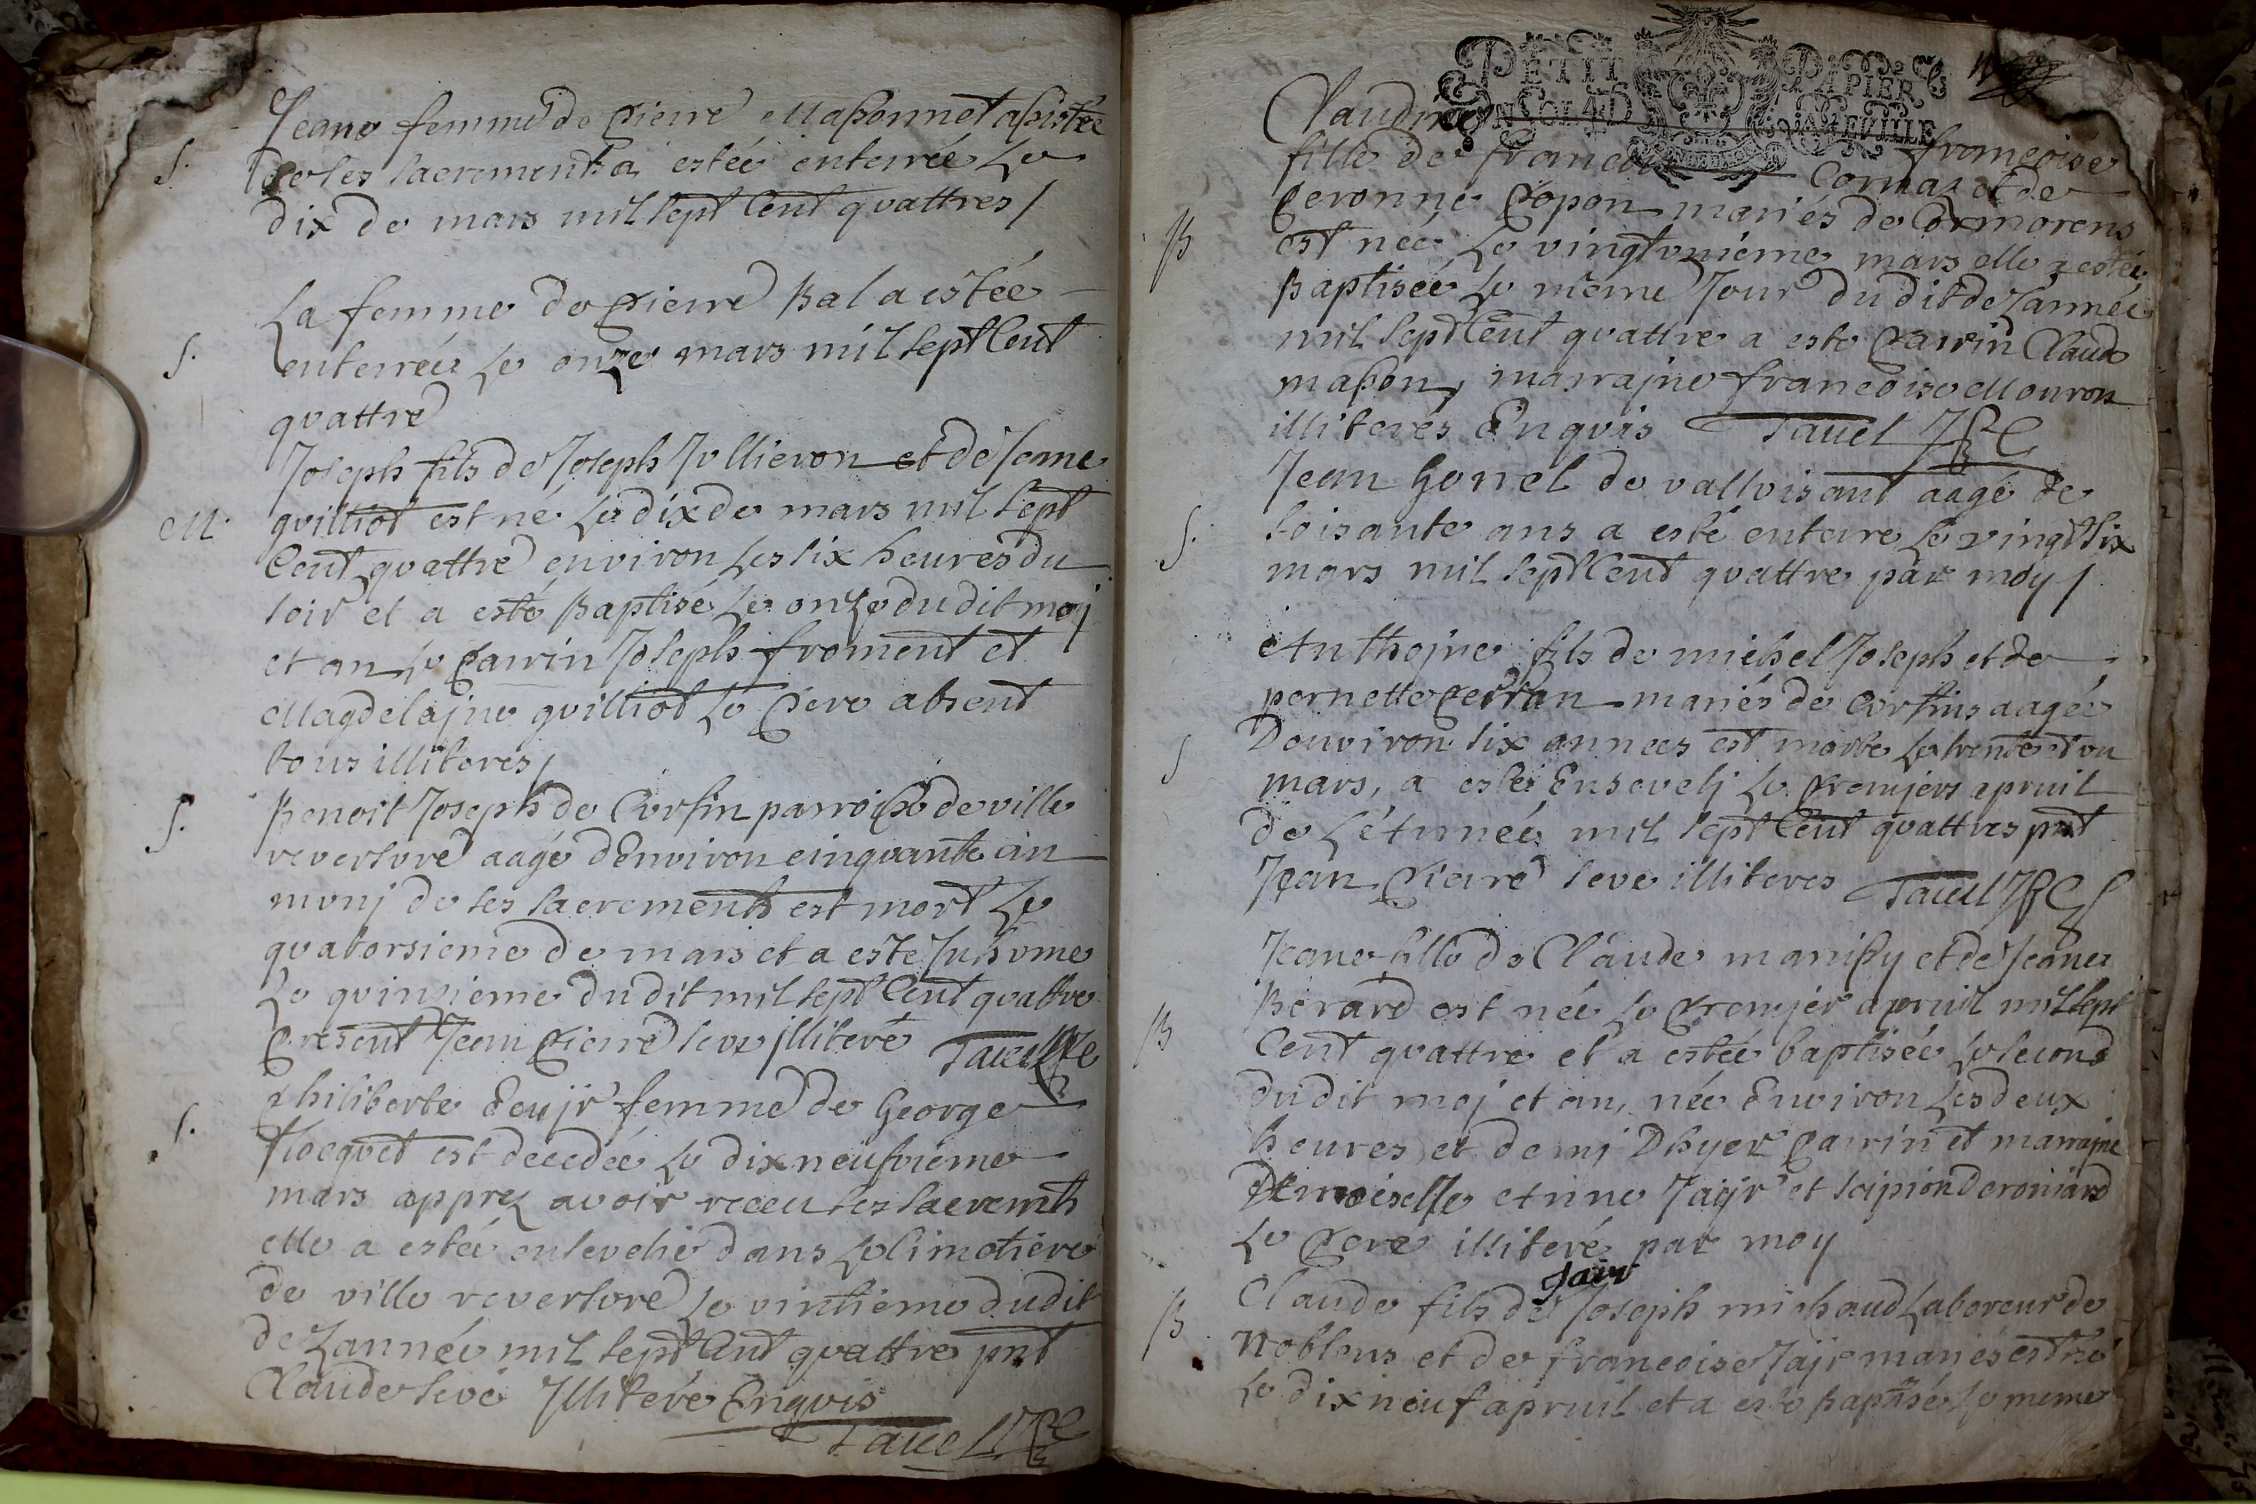 Jeane femme de pierre Massonnet assistée
S. de ses sacrements a estée enterrée le
dix de mars mil sept Cent quattres /
La femme de pierre Bal a estée
S. enterrée le onze mars mil sept Cent
quattre
Joseph fils de Joseph Jullieron et de Jeane
M. guilliot est né le dix de mars mil sept
Cent quattre environ les six heures du
soir et a esté Baptisé le onze du dit moj
et an le parrin Joseph froment et
Magdelajne guilliot le pere absent
tous illiteres /
S. Benoit Joseph de Corsin parroisse de ville
reversure aagé d'Environ cinquante an
munj de ses sacrements est mort le
quatorsieme de mars et a esté Inhume
le quinzieme du dit mil sept Cent quattre
present Jean pierre seve illiteré Tavel
S. philiberte femme de George
est decedée le dix neufvieme
mars apprez avoir receu ses sacremts
elle a estée ensevelie dans le Cimetiere
de ville reversure le vintieme du dit
de L'année mil sept Cent quattre pnt
Claude seve Illiteré Enquis
Tavel
PETIT PAPIER
UN SOL 4 D LA FEUILLE
Claudine
françoise
fille de francois Cornaz et de
peronne popon mariés de Cormorens
B est née le vingt unieme mars elle a estée
Baptisée le même Jour du dit de L'année
mil sept Cent quattre a esté parrin Claude
masson, marrajne francoise Mouron
illiterés Enquis Tavel
Jean Gonel de valluisant aagé de
S. soisante ans a esté enterre le vingt six
mars mil sept Cent quattre par moy /
Anthojne fils de michel Joseph et de
pernette perran mariés de Corsins aagée
S D'environ six annees est morte le trente et un
mars, a estéé Ensevelj le premjers apruil
de mil sept Cent quattres pnt
Jean pierre seve illiteres Tavel
Jeane fille de Claude et de Jeane
Berard est née le premjer apruil mil sept
B Cent quattre et a estée baptisée le second
du dit moj et an, née Environ les deux
heures et demj D'hyer parrin et marrajne
Demoiselle Anne Jayr et scipion
le pere illiteré par moy
Jayr
Claude fils de Joseph michaud Laboreur de
B. Noblens et de francoise Jajr mariés est né
le dix neuf apruil et a esté baptisé le meme